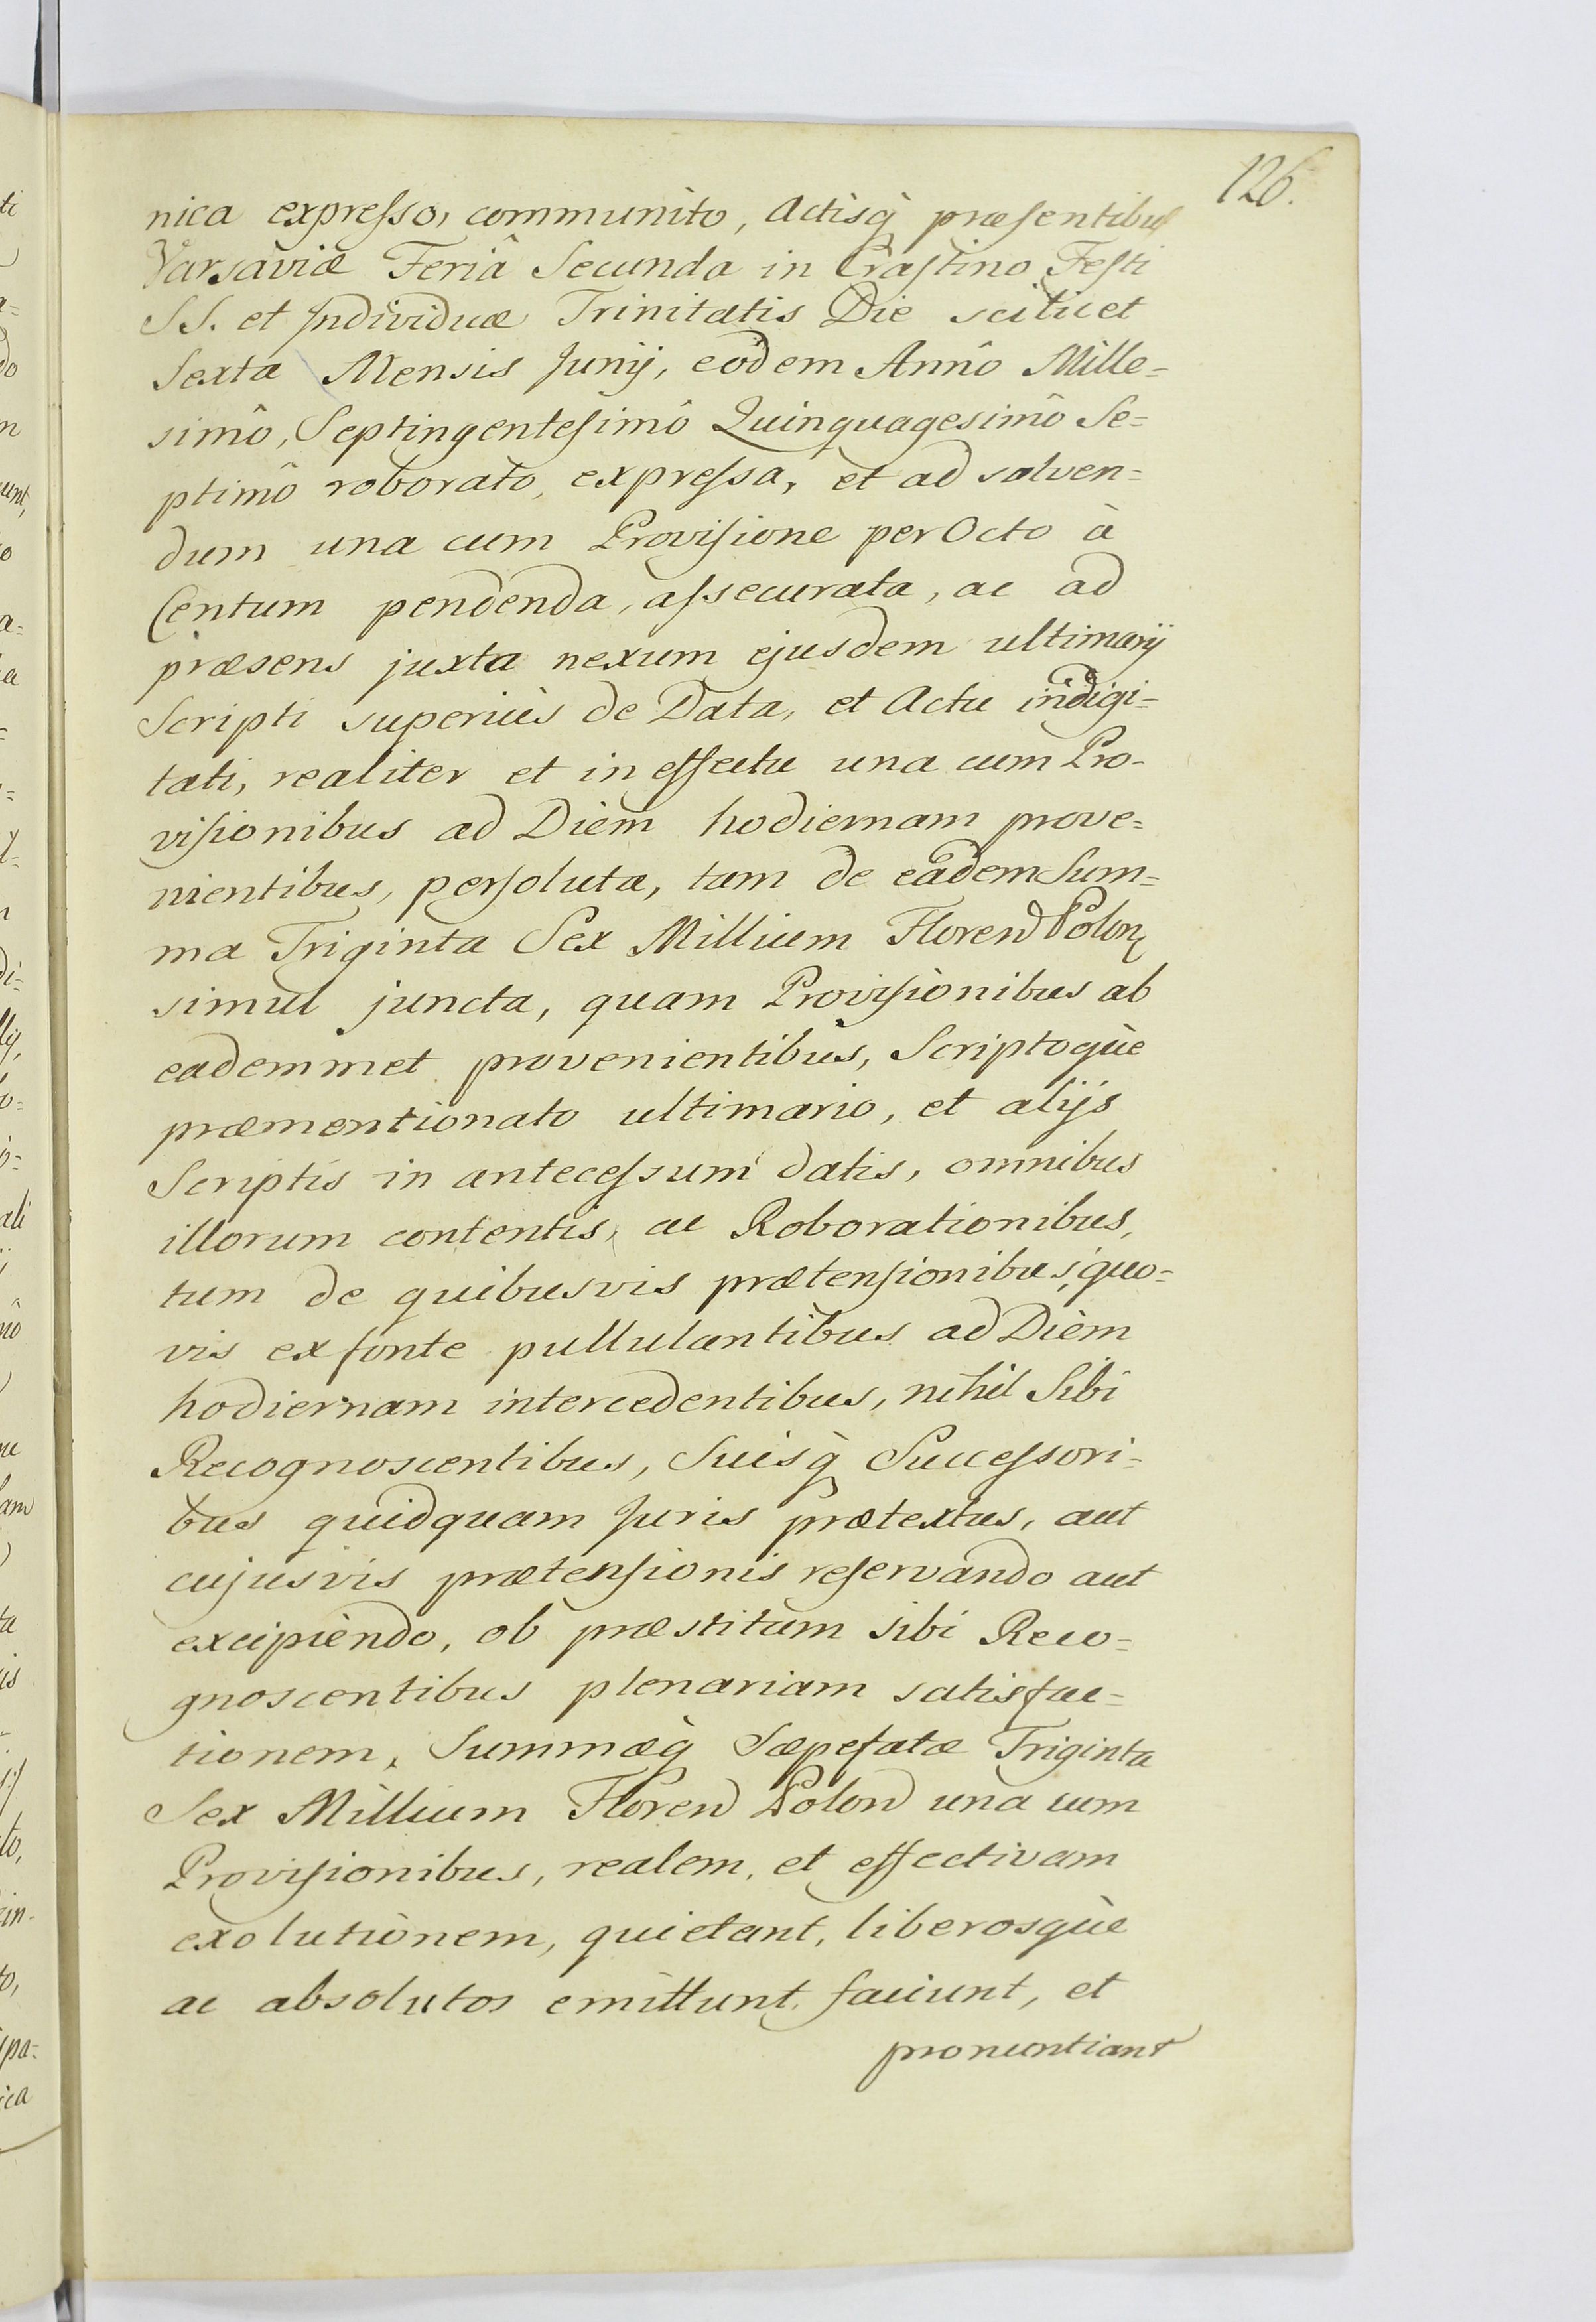 126.
nica expresso, communito, Actisq́ præsentibus
Varsaviæ Feriâ Secunda in Crastino Festi
SS. et Individuæ Trinitatis Die scilicet
Sexta Mensis Junij, eodem Annô Mille=
simô, Septingentesimô Quinquagesimô Se=
ptimô roborato, expressa, et ad solven=
dum una cum Provisione per Octo à
Centum pendenda, assecurata, ac ad
præsens juxta nexum ejusdem ultimarij
Scripti superiùs de Data, et Actu indigi=
tati, realiter et in effectu una cum Pro-
visionibus ad Diem hodiernam prove=
nientibus, persoluta, tam de eâdem Sum=
ma Triginta Sex Millium Floren Polon
simul juncta, quam Provisionibus ab
eademmet provenientibus, Scriptoquè
præmentionato ultimario, et alijs
Scriptis in antecessum datis, omnibus
illorum contentis, ac Roborationibus,
tum de quibusvis prætensionibus, quo=
vis ex fonte pullulantibus ad Diem
hodiernam intercedentibus, nihil Sibi
Recognoscentibus, Suisq́ Successori=
bus quidquam Juris prætextus, aut
cujusvis prætensionis reservando aut
excipiendo, ob præstitam sibi Reco=
gnoscentibus plenariam satisfac=
tionem, Summæq́ Sæpefatæ Triginta
Sex Millium Floren Polon una cum
Provisionibus, realem, et effectivam
exolutionem, quietant, liberosquè
ac absolutos emittunt, faciunt, et
pronuntiant